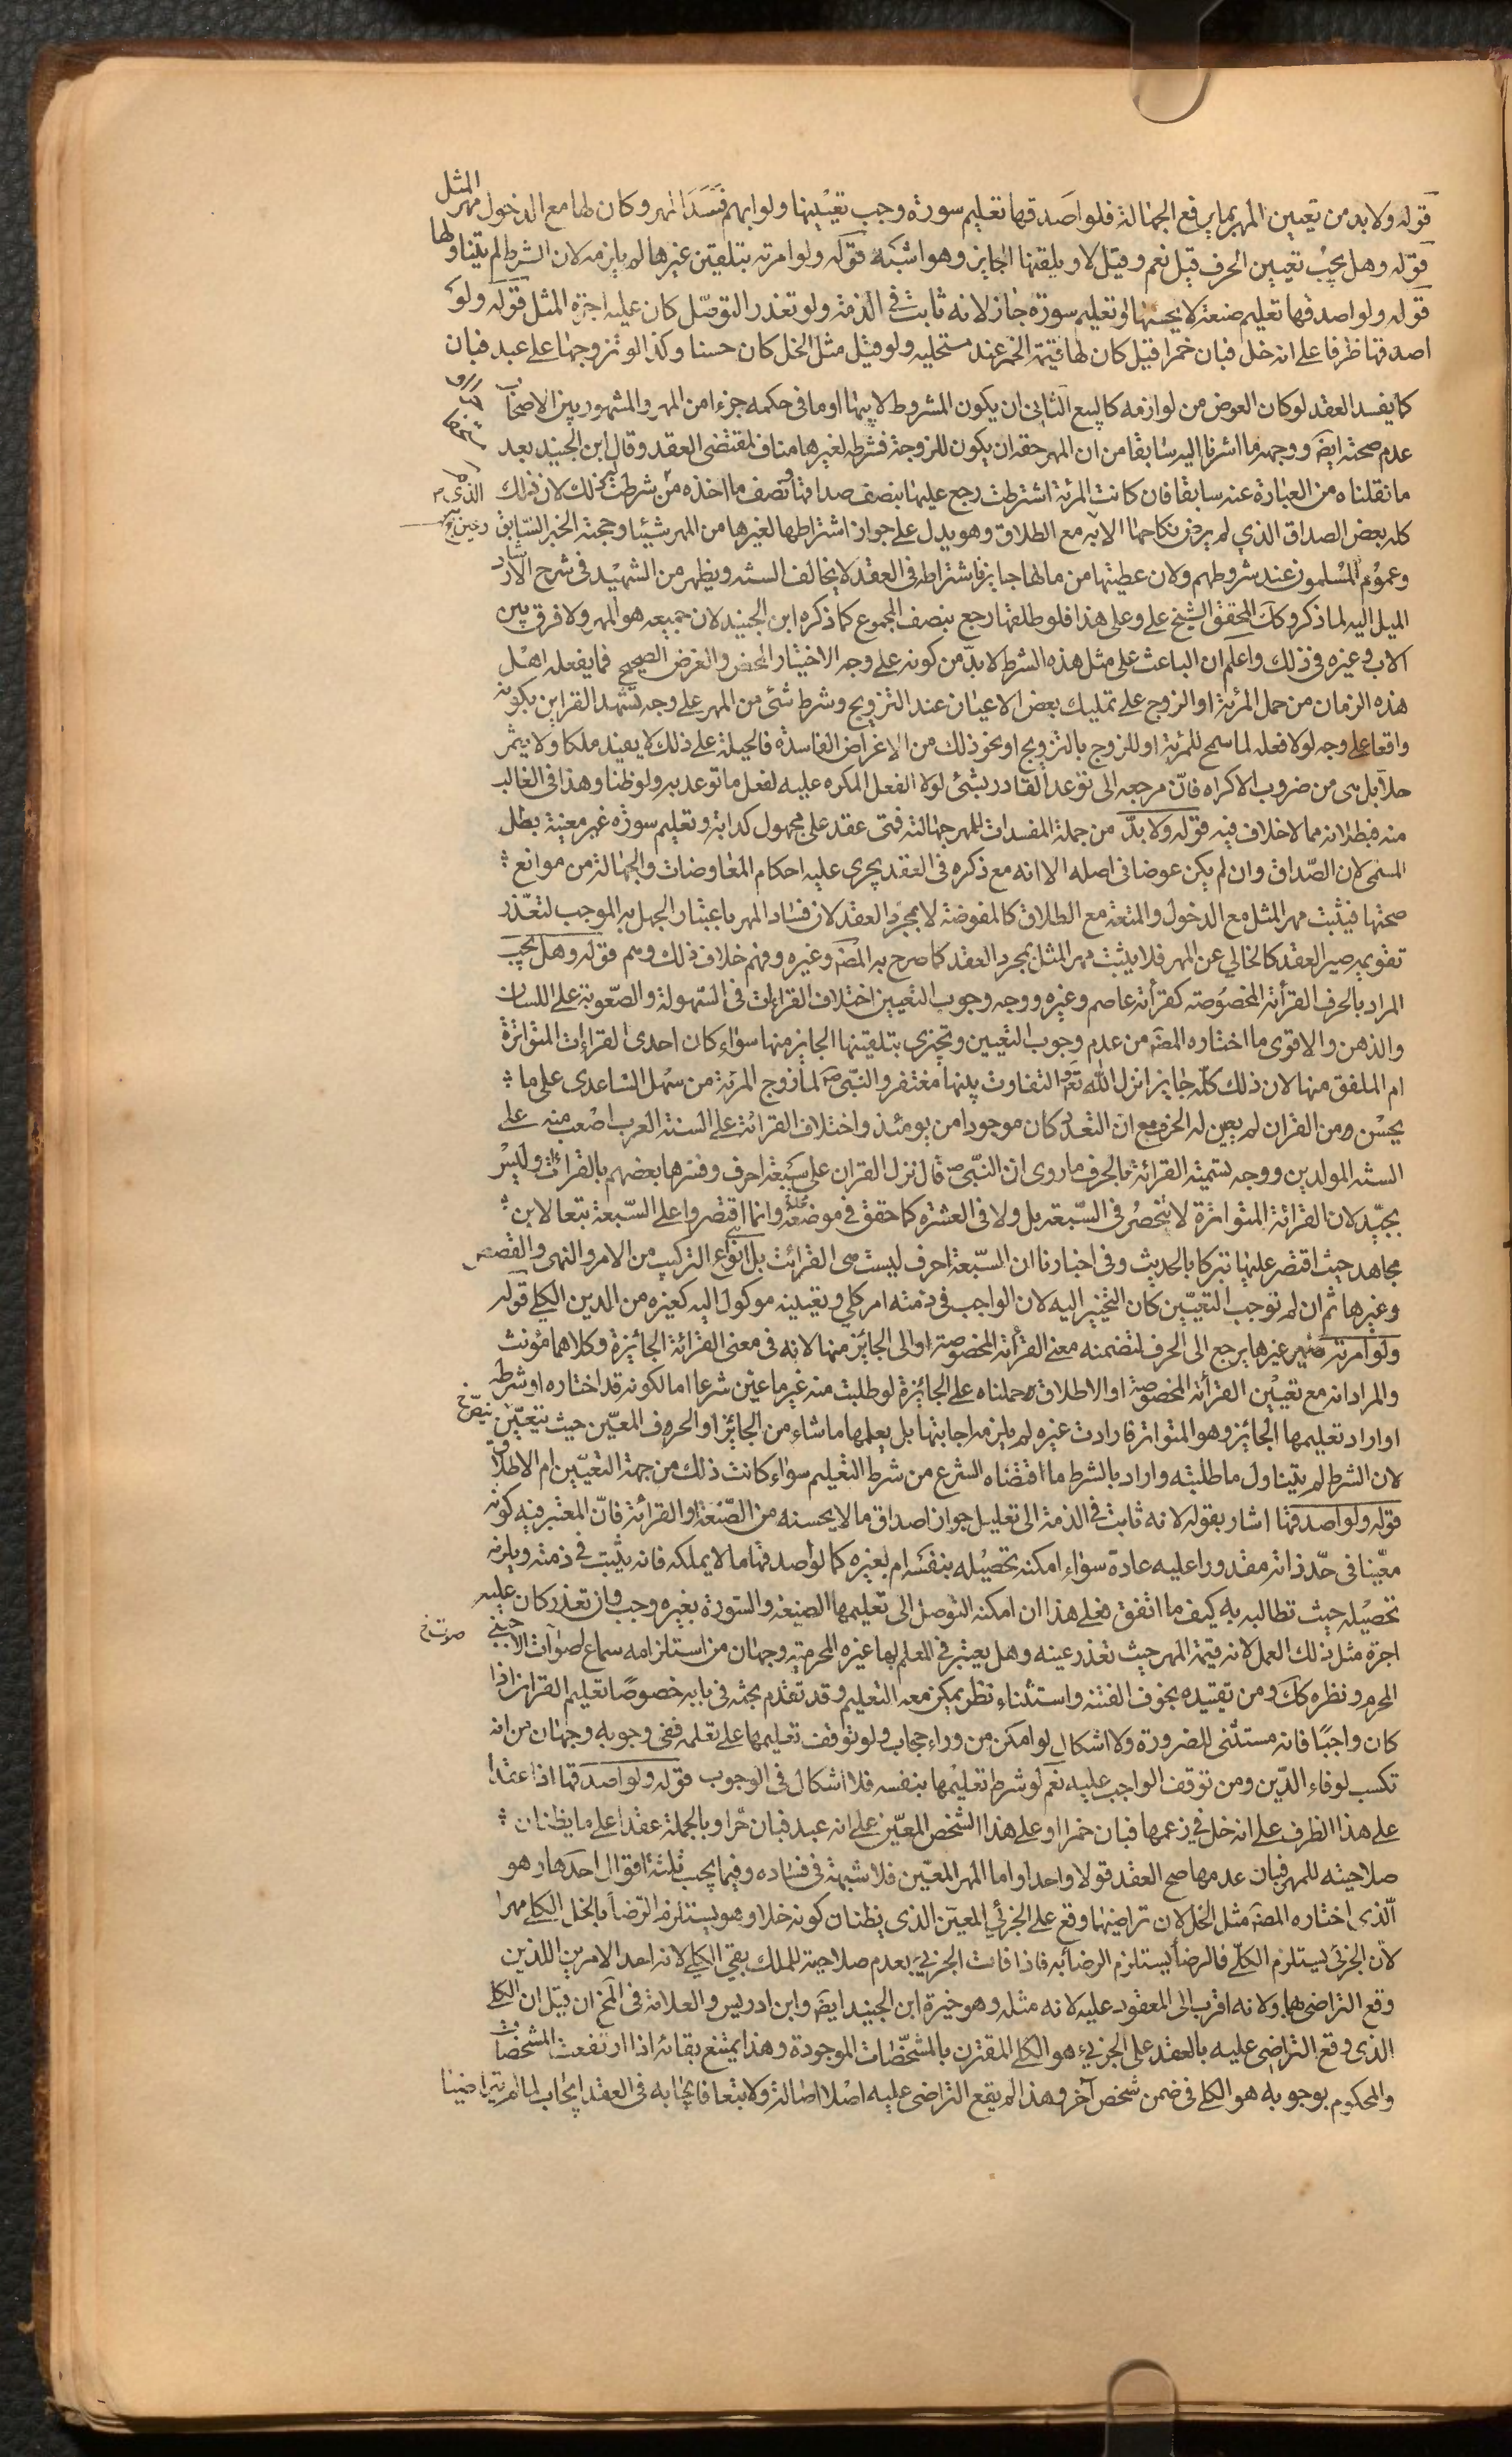 قوله ولا بد من تعيين المهر بما يرفع الجهالة فلو اصدقها تعليم سورة وجب تعيينها ولو ابهم فسد المهر وكان لها مع الدخول مهر المثل
قوله وهل يجب تعيين الحرف قيل نعم وقيل لا ويلقنها الجايز وهو اشبه قوله ولو امرته بتلقين غيرها لم يلزمه لان الشرط لم يتناولها
قوله ولو اصدقها تعليم صنعة لا يحسنها او تعليم سورة جاز لانه ثابت في الذمة ولو تعذر التوصل كان عليه اجرة المثل قوله ولو
اصدقها ظرفا على انه خل فبان خمرا قيل كان لها قيمة الخمر عند مستحليه ولو قيل مثل الخل كان حسنا وكذا لو تزوجها على عبد فبان
كما يفسد العقد لو كان العوض من لوازمه كالبيع الثاني ان يكون المشروط لابيها او ما في حكمه جزءا من المهر والمشهور بين الاصحاب
عدم صحته ايضا ووجهه ما اشرنا اليه سابقا من ان المهر حقه ان يكون للزوجة فشرطه لغيرها مناف لمقتضى العقد وقال ابن الجنيد بعد
ما نقلناه من العبارة عنه سابقا فان كانت المرئة اشترطت رجع عليها بنصف صداقها ونصف ما اخذه من شرطت له ذلك لان ذلك
كله بعض الصداق الذي لم يرض نكاحها الا به مع الطلاق وهو يدل على جواز اشتراطها لغيرها من المهر شيئا وحجته الخبر السابق
وعموم المسلمون عند شروطهم ولان عطيتها من مالها جايز فاشتراطه في العقد لا يخالف السنة ويظهر من الشهيد في شرح الارشاد
الميل اليه لما ذكر وكك المحقق الشيخ علي وعلى هذا فلو طلقها رجع بنصف المجموع كما ذكره ابن الجنيد لان جميعه هو المهر ولا فرق بين
الاب وغيره في ذلك واعلم ان الباعث على مثل هذه الشرط لا بد من كونه على وجه الاختيار المحض والغرض الصحيح فما يفعله اهل
هذه الزمان من حمل المرئة او الزوج على تمليك بعض الاعيان عند التزويج وشرط شئ من المهر على وجه تشهد القراين بكونه
واقعا على وجه لولا فعله لما سمح للمرئة او للزوج بالتزويج او نحو ذلك من الاغراض الفاسدة فالحيلة على ذلك لا يفيد ملكا ولا يثمر
حلا بل هى من ضروب الاكراه فان مرجعه الى توعد القادر بشئ لولا الفعل المكره عليه لفعل ما توعد به ولو ظنا وهذا في الغالب
منه فبطلانه مما لا خلاف فيه قوله ولا بد من جملة المفسدات للمهر جهالته فمتى عقد على مجهول كدابة وتعليم سورة غير معينة بطل
المسمى لان الصداق وان لم يكن عوضا في اصله الا انه مع ذكره في العقد يجرى عليه احكام المعاوضات والجهالة من موانع
صحتها فيثبت مهر المثل مع الدخول والمتعة مع الطلاق كالمفوضة لا بمجرد العقد لان فساد المهر باعتبار الجهل به الموجب لتعذر
تقويمه صير العقد كالخالي عن المهر فلا يثبت مهر المثل بمجرد العقد كما صرح به المصنف وغيره وفهم خلاف ذلك وهم قوله وهل يجب
المراد بالحرف القرأئة المخصوصة كقرأئة عاصم وغيره ووجه وجوب التعيين اختلاف القراءات في السهولة والصعوبة على اللسان
والذهن والاقوى ما اختاره المصنف من عدم وجوب التعيين ويجزى بتلقينها الجايز منها سواء كان احدى القراءات المتواترة
ام الملفق منها لان ذلك كله جايز انزل الله تع والتفاوت بينها مغتفر والنبى ص لما زوج المرئة من سهل الساعدى على ما
يحسن من القران لم يعين له الحرف مع ان التعدد كان موجودا من يومئذ واختلاف القرائة على السنة العرب اصعب منه على
السنة المولدين ووجه تسمية القرائة بالحرف ما روى ان النبى ص قال نزل القران على سبعة احرف وفسرها بعضهم بالقراءات وليس
بجيد لان القرائة المتواترة لا تنحصر في السبعة بل ولا في العشرة كما حقق في موضعه وانما اقتصروا على السبعة تبعا لابن
مجاهد حيث اقتصر عليها تبركا بالحديث وفي اخبارنا ان السبعة احرف ليست هى القرائت بل انواع التركيب من الامر والنهى والقصص
وغيرها ثم ان لم نوجب التعيين كان التخيير اليه لان الواجب في ذمته امر كلي وتعيينه موكول اليه كغيره من الدين الكلي قوله
ولو امرته ضمير غيرها يرجع الى الحرف لتضمنه معنى القرأئة المخصوصة او الى الجائز منها لانه في معنى القرائة الجائزة وكلاهما مؤنث
والمراد انه مع تعيين القرأئة المخصوصة او الاطلاق وحملناه على الجائزة لو طلبت منه غير ما عين شرعا اما لكونه قد اختاره او شرطه
او اراد تعليمها الجائز وهو المتواتر فارادت غيره لم يلزمه اجابتها بل يعلمها ما شاء من الجائز او الحروف المعين حيث يتعين
لان الشرط لم يتناول ما طلبته واراد بالشرط ما اقتضاه الشرع من شرط التعليم سواء كانت ذلك من جهة التعيين ام الاطلاق
قوله ولو اصدقها اشار بقوله لانه ثابت في الذمة الى تعليل جواز اصداق ما لا يحسنه من الصنعة والقرائة فان المعتبر فيه كونه
معينا في حد ذاته مقدورا عليه عادة سواء امكنه تحصيله بنفسه ام بغيره كما لو اصدقها ما لا يملكه فانه يثبت في ذمته ويلزمه
تحصيله حيث تطالبه به كيف ما اتفق فعلى هذا ان امكنه التوصل الى تعليمها الصنعة والسورة بغيره وجب وان تعذر كان عليه
اجرة مثل ذلك العمل لانه قيمة المهر حيث تعذر عينه وهل يعتبر في المعلم لها غيره المحرمية وجهان من استلزامه سماع اصوات الاجنبي
المحرم ونظره كك ومن تقييده بخوف الفتنة واستثناء نظر يمكن معه التعليم وقد تقدم بحثه في بابه خصوصا تعليم القران اذا
كان واجبا فانه مستثنى للضرورة ولا اشكال لو امكن من وراء حجاب ولو توقف تعليمها على تعلمه ففي وجوبه وجهان من انه
تكسب لوفاء الدين ومن توقف الواجب عليه نعم لو شرط تعليمها بنفسه فلا اشكال في الوجوب قوله ولو اصدقها اذا عقدا
على هذا الظرف على انه خل في زعمها فبان خمرا او على هذا الشخص المعين على انه عبد فبان حرا وبالجملة عقدا على ما يظنان
صلاحيته للمهر فبان عدمها صح العقد قولا واحدا واما المهر المعين فلا شبهة في فساده وفيما يجب ثلثة اقوال احدها وهو
الذى اختاره المصنف مثل الخل لان تراضيهما وقع على الجزئي المعين الذى يظنان كونه خلا وهو يستلزم الرضا بالخل الكلي مهرا
لان الجزئى يستلزم الكلي فالرضا يستلزم الرضا به فاذا فات الجزئي بعدم صلاحية للملك بقي الكلي لانه احد الامرين اللذين
وقع التراضى بهما ولانه اقرب الى المعقود عليه لانه مثله وهو خيرة ابن الجنيد ايضا وابن ادريس والعلامة في المخ ان قيل ان الكلي
الذى وقع التراضى عليه بالعقد على الجزئي هو الكلي المقترن بالمشخصات الموجودة وهذا يمتنع بقائه اذا ارتفعت المشخصات
والمحكوم بوجوبه هو الكلي في ضمن شخص آخر وهذا لم يقع التراضى عليه اصلا اصالة ولا تبعا فايجابه في العقد ايجاب لما لم يتراضيا